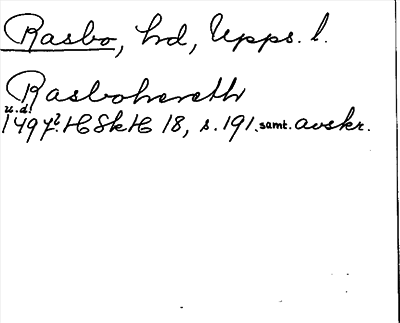 Rasbo, hd, Upps. l.
Rasbohereth
u.d.
1497? HSkH 18, s. 191. samt. avskr.